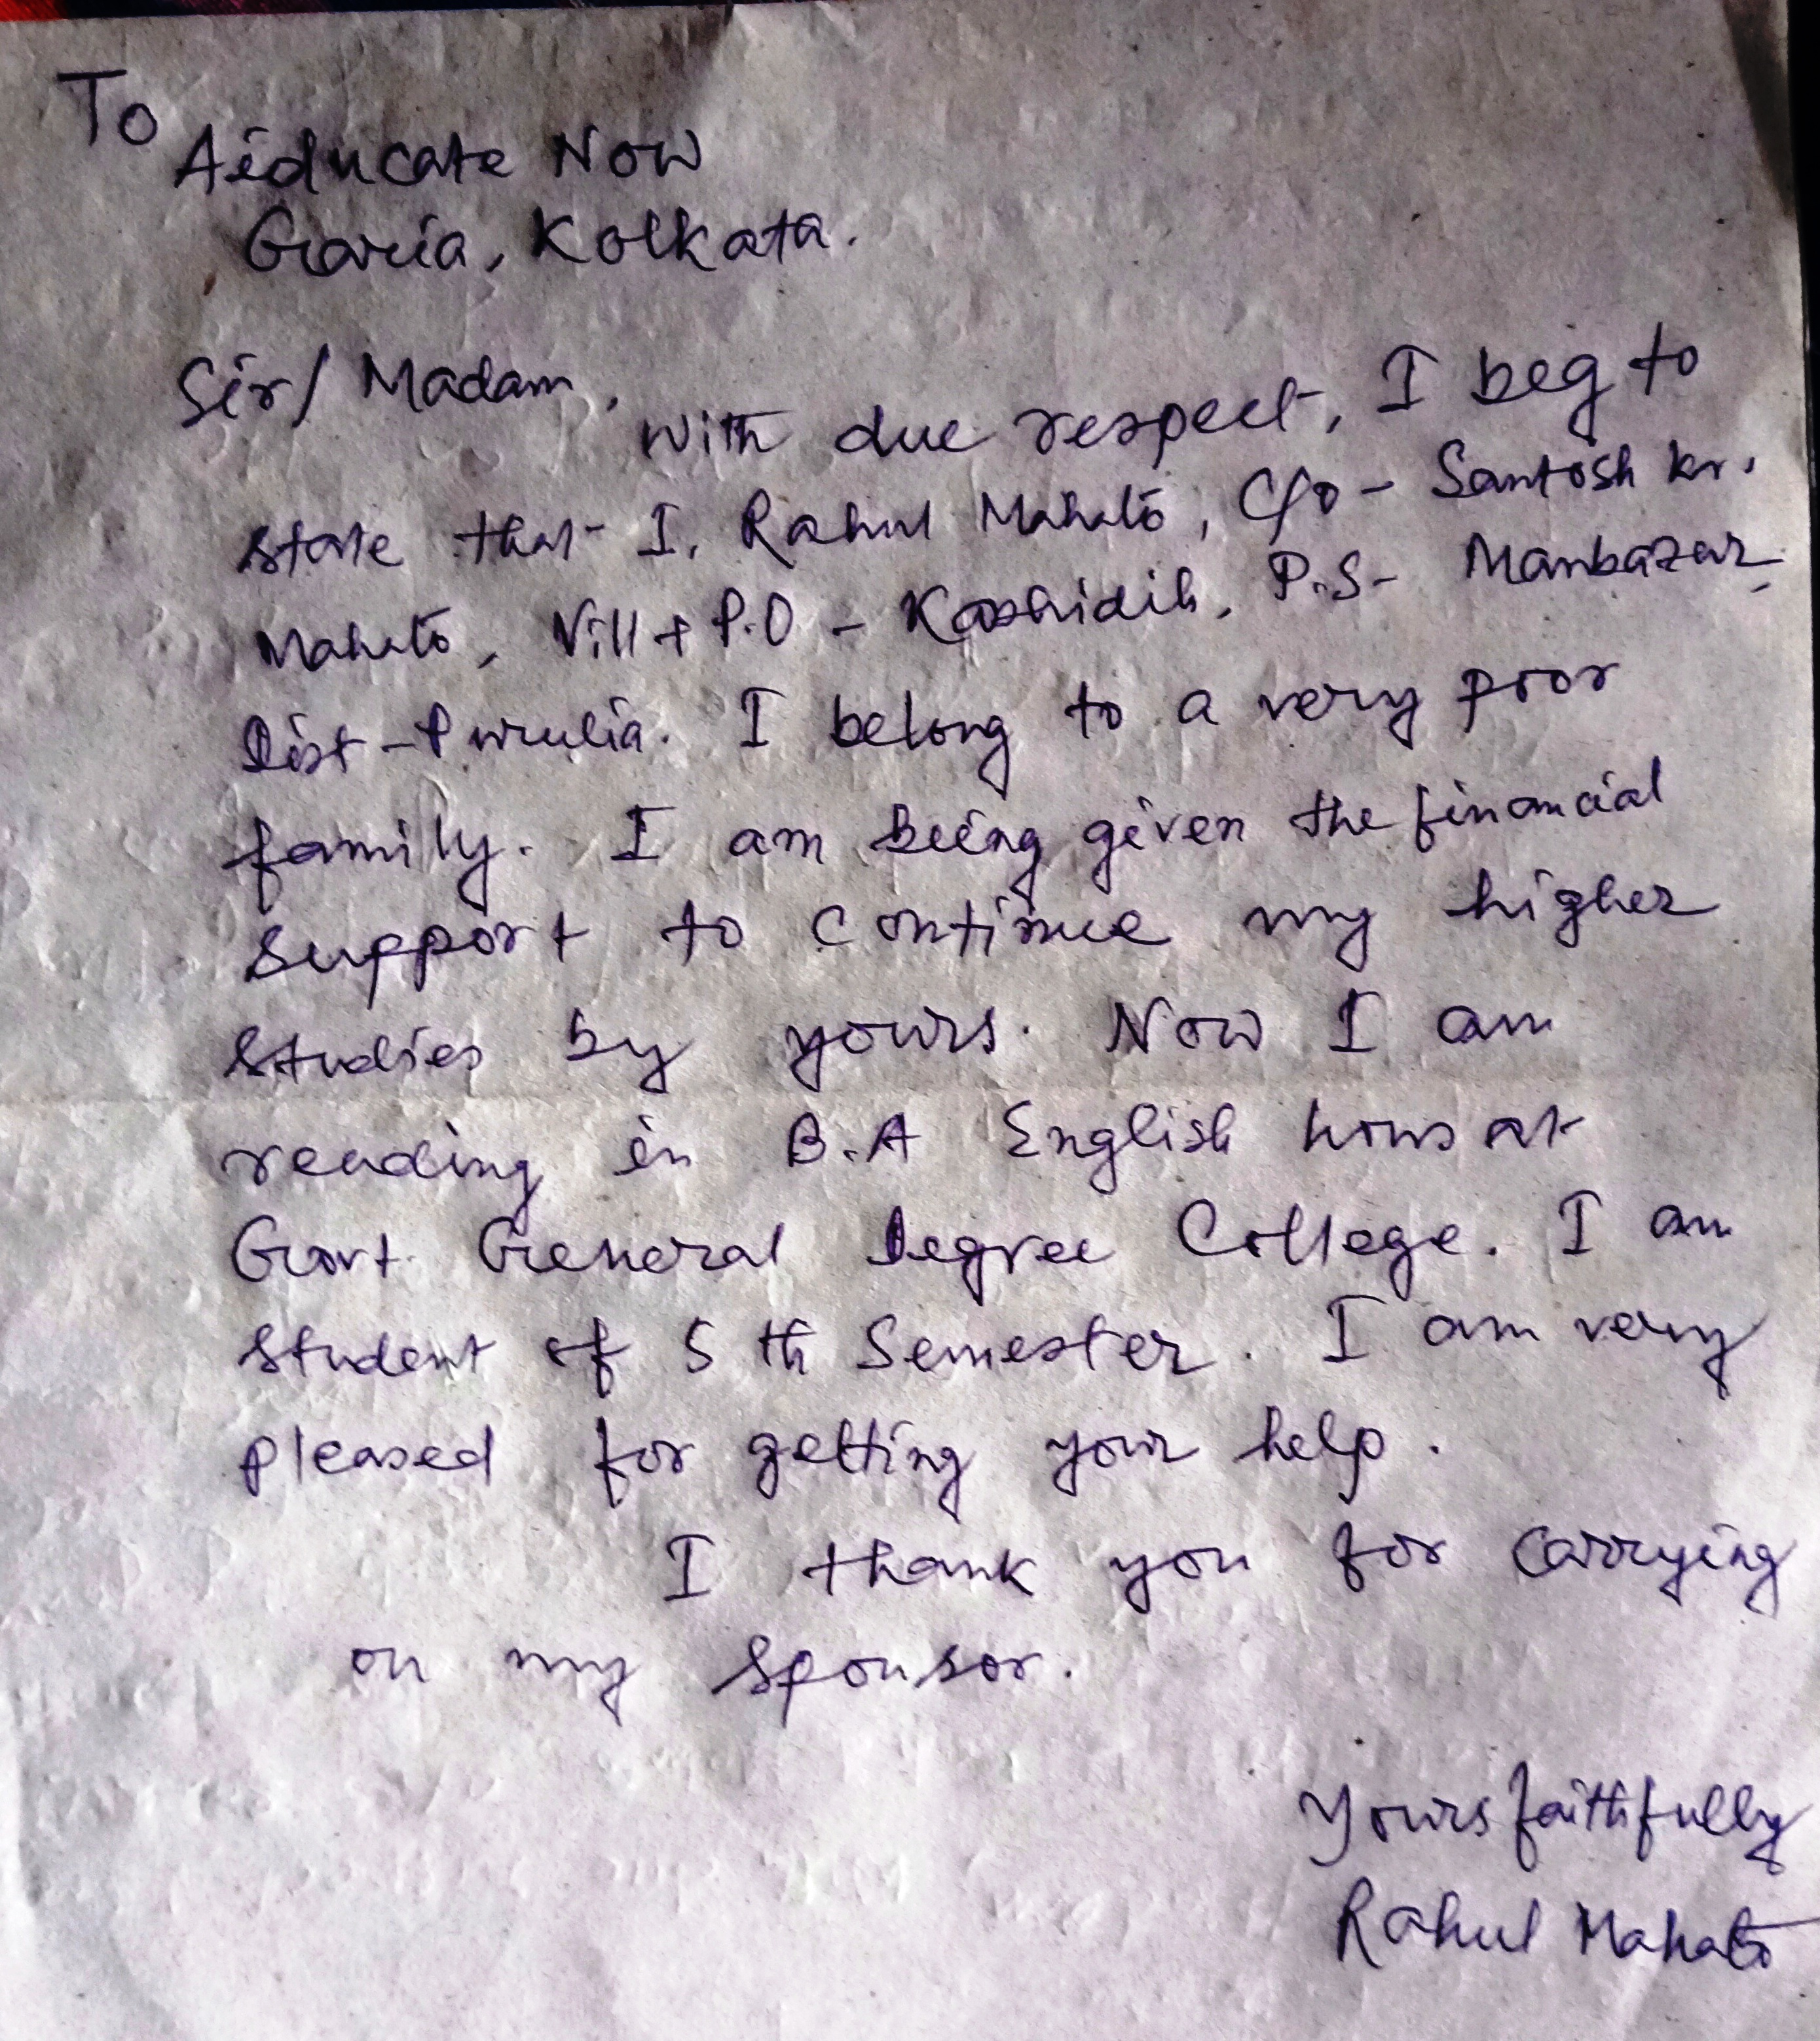 To
Aiducate Now
Garia, Kolkata.
Sir/ Madam,
With due respect, I beg to
state that I, Rahul Mahato, C/o - Santosh kr.
Mahato, Vill + P.O - Kashidih, P.S- Manbazar,
Dist - Purulia. I belong to a very poor
family. I am being given the financial
support to continue my higher
studies by yours. Now I am
reading in B.A English hons at
Govt. General Degree College. I am
student of 5 th Semester. I am very
pleased for getting your help.
I thank you for carrying
on my sponsor.
Yours faithfully
Rahul Mahato